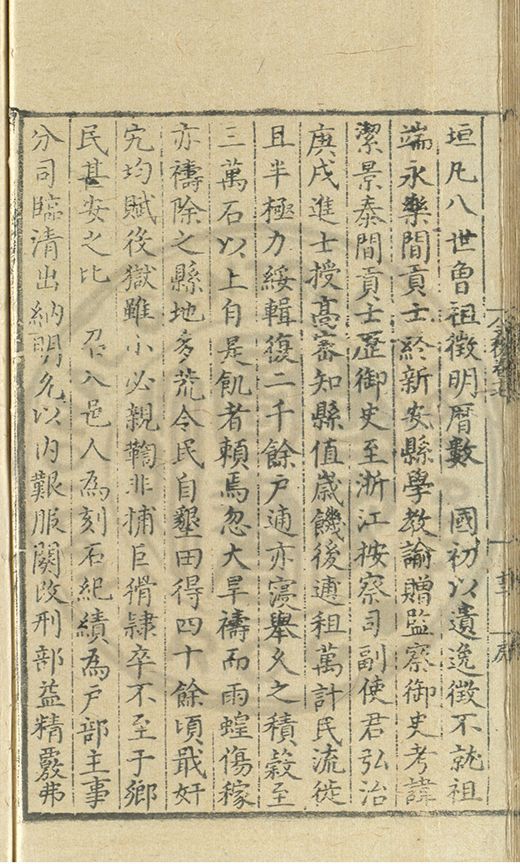 垣凡八世曾祖徵明曆數　國初以遺逸徵不就祖
端永樂間貢士終新安縣學教諭贈監察御史考諱
潔景泰間貢士歷御史至浙江按察司副使君弘治
庚戌進士授高密知縣值歲饑後逋租萬計民流徙
且半極力綏輯復二千餘戶逋亦寖舉久之積穀至
三萬石以上自是飢者賴焉忽大旱禱而雨蝗傷稼
亦禱除之縣地多荒令民自墾田得四十餘頃戢奸
宄均賦役獄雖小必親鞫非捕巨猾隷卒不至于鄉
民甚安之比　召入邑人為刻石紀績為戶部主事
分司臨清出納明允以內艱服闋改刑部益精覈弗